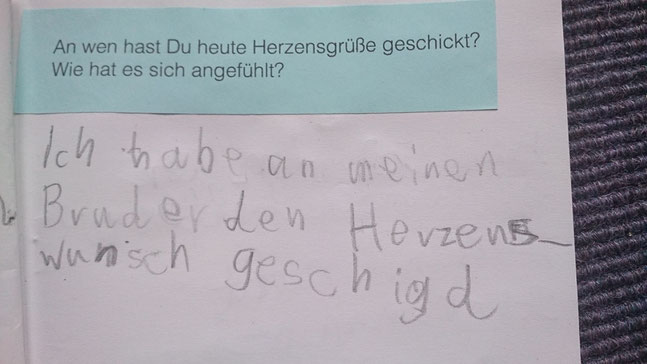 An wen hast Du heute Herzensgrüße geschickt?
Wie hat es sich angefühlt?
Ich habe an meinen
Bruder den Herzens-
wunsch geschigd